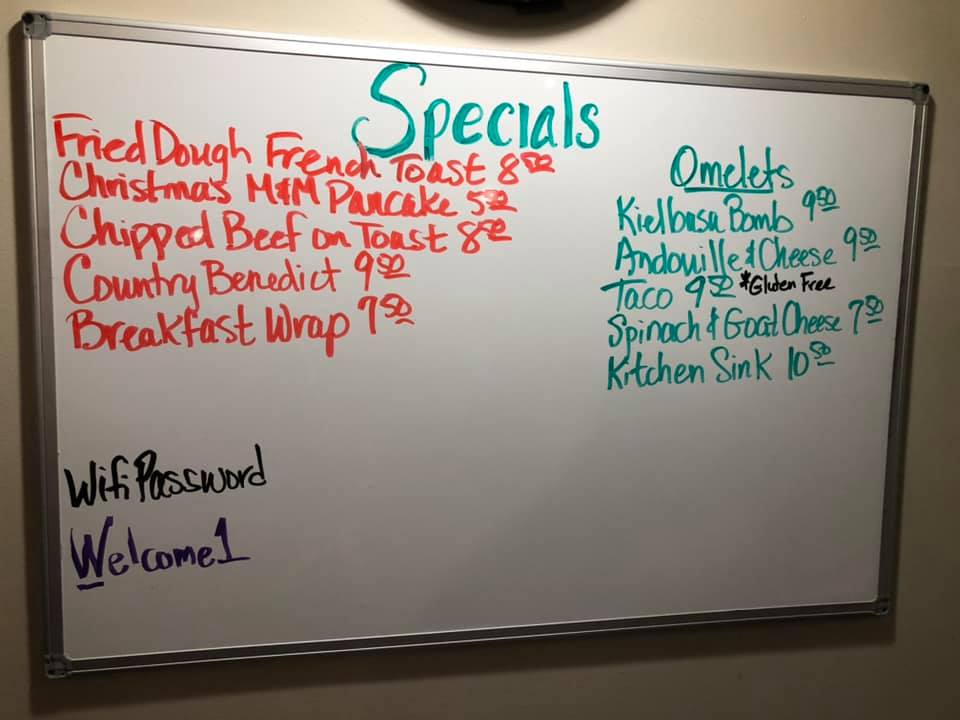 Specials
Fried Dough French Toast 8.50
Christmas M&M Pancake 5.50
Chipped Beef on Toast 8.50
Country Benedict 9.50
Breakfast Wrap 7.50
Omelets
Kielbasa Bomb 9.50
Andouille & Cheese 9.50
Taco 9.50 *Gluten Free
Spinach & Goat Cheese 7.50
Kitchen Sink 10.50
Wifi Password
Welcome1